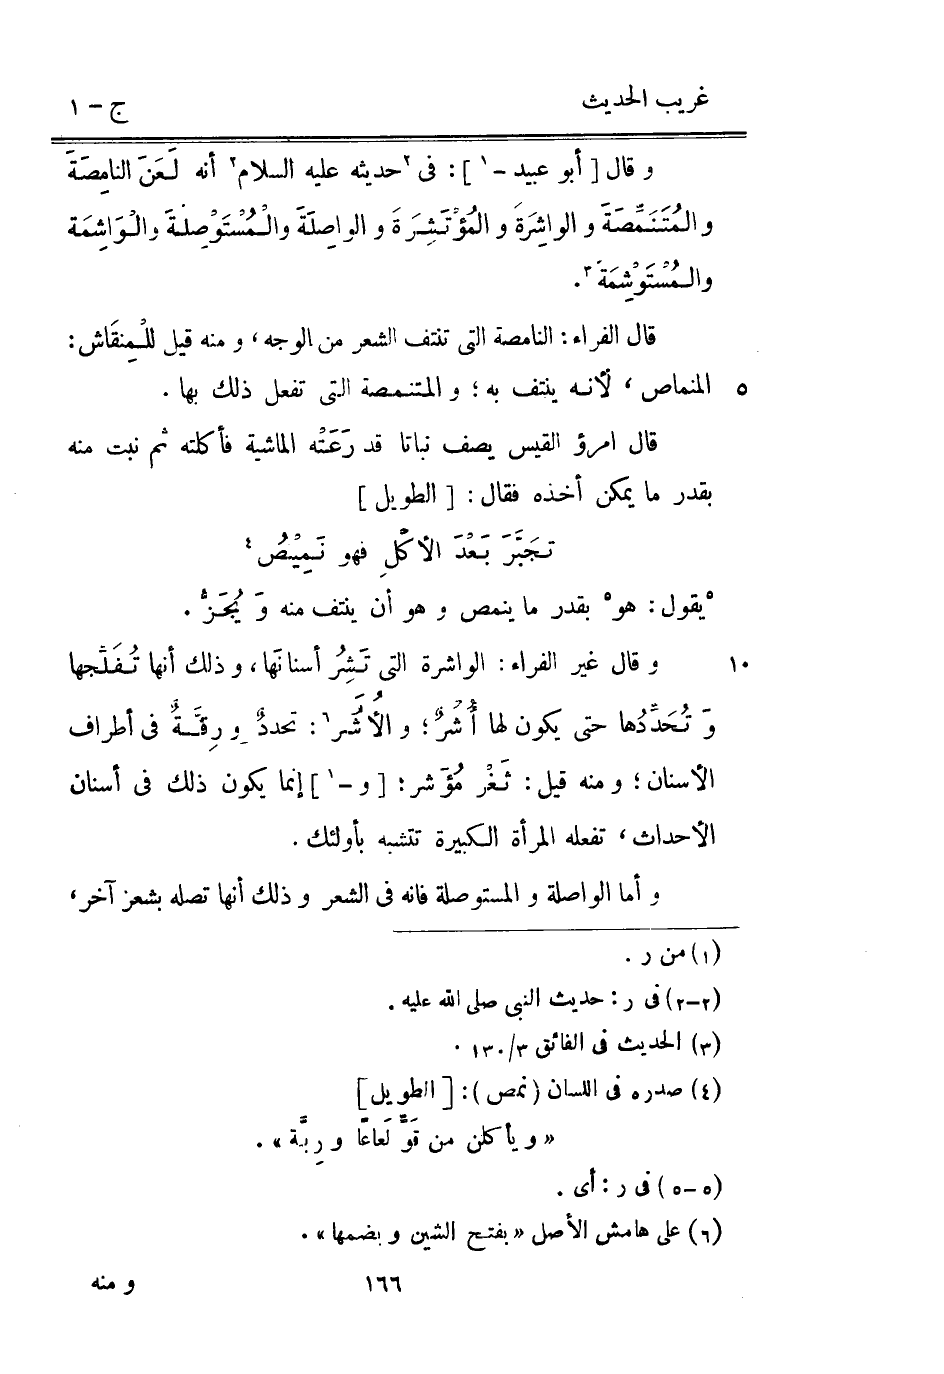 غريب الحديث ج – ١
و قال [ أبو عبيد – ١ ] : فى ٢حديثه عليه السلام٢ أنه لَعَنَ النامِصَةَ
و المُتَنَمِّصَةَ و الواشِرَةَ و المُؤْتَشِرَةَ و الواصِلَةَ والمُسْتَوْصِلَةَ والوَاشِمَة
والمُسْتَوْشِمَةَ ٣.
قال الفراء : النامصة التى تنتف الشعر من الوجه ، و منه قيل للْمِنقَاش :
٥ المنماص ، لأنه ينتف به ؛ و المتنمصة التى تفعل ذلك بها .
قال امرؤ القيس يصف نباتا قد رَعَتْه الماشية فأكلته ثم نبت منه
بقدر ما يمكن أخذه فقال : [ الطويل ]
تَجَبَّرَ بَعْدَ الأكْلِ فهو نَمِيْصُ ٤
٥يقول : هو٥ بقدر ما ينمص و هو أن ينتف منه وَ يُجَزُّ .
١٠ و قال غير الفراء : الواشرة التى تَشِرُ أسنانَها ، و ذلك أنها تُفَلِّجها
وَ تُحَدِّدُها حتى يكون لها أُشُرٌ ؛ و الأُشَُر٦ : تحددٌ و رِقَّةٌ فى أطراف
الأسنان ؛ و منه قيل : ثَغْر مُؤَشر : [ و – ١ ] إنما يكون ذلك فى أسنان
الأحداث ، تفعله المرأة الكبيرة تتشبه بأولئك .
و أما الواصلة و المستوصلة فانه فى الشعر و ذلك أنها تصله بشعر آخر ،
(١) من ر .
(٢–٢) فى ر : حديث النبى صلى الله عليه .
(٣) الحديث فى الفائق ٣/١٣٠ .
(٤) صدره فى اللسان ( نمص ) : [ الطويل ]
« و يأكلن من قَوٍّ لَعَاعًا و رِبَّة » .
(٥–٥) فى ر : أى .
(٦) على هامش الأصل « بفتح الشين و بضمها » .
١٦٦ و منه